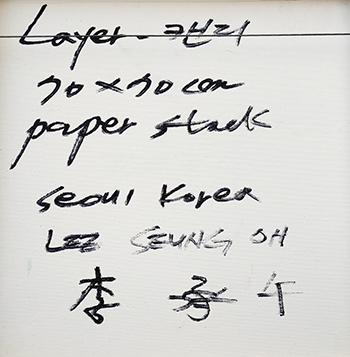 Layer - 캔디
70 x 70 cm
paper stack
Seoul Korea
LEE SEUNG OH
李 承 午